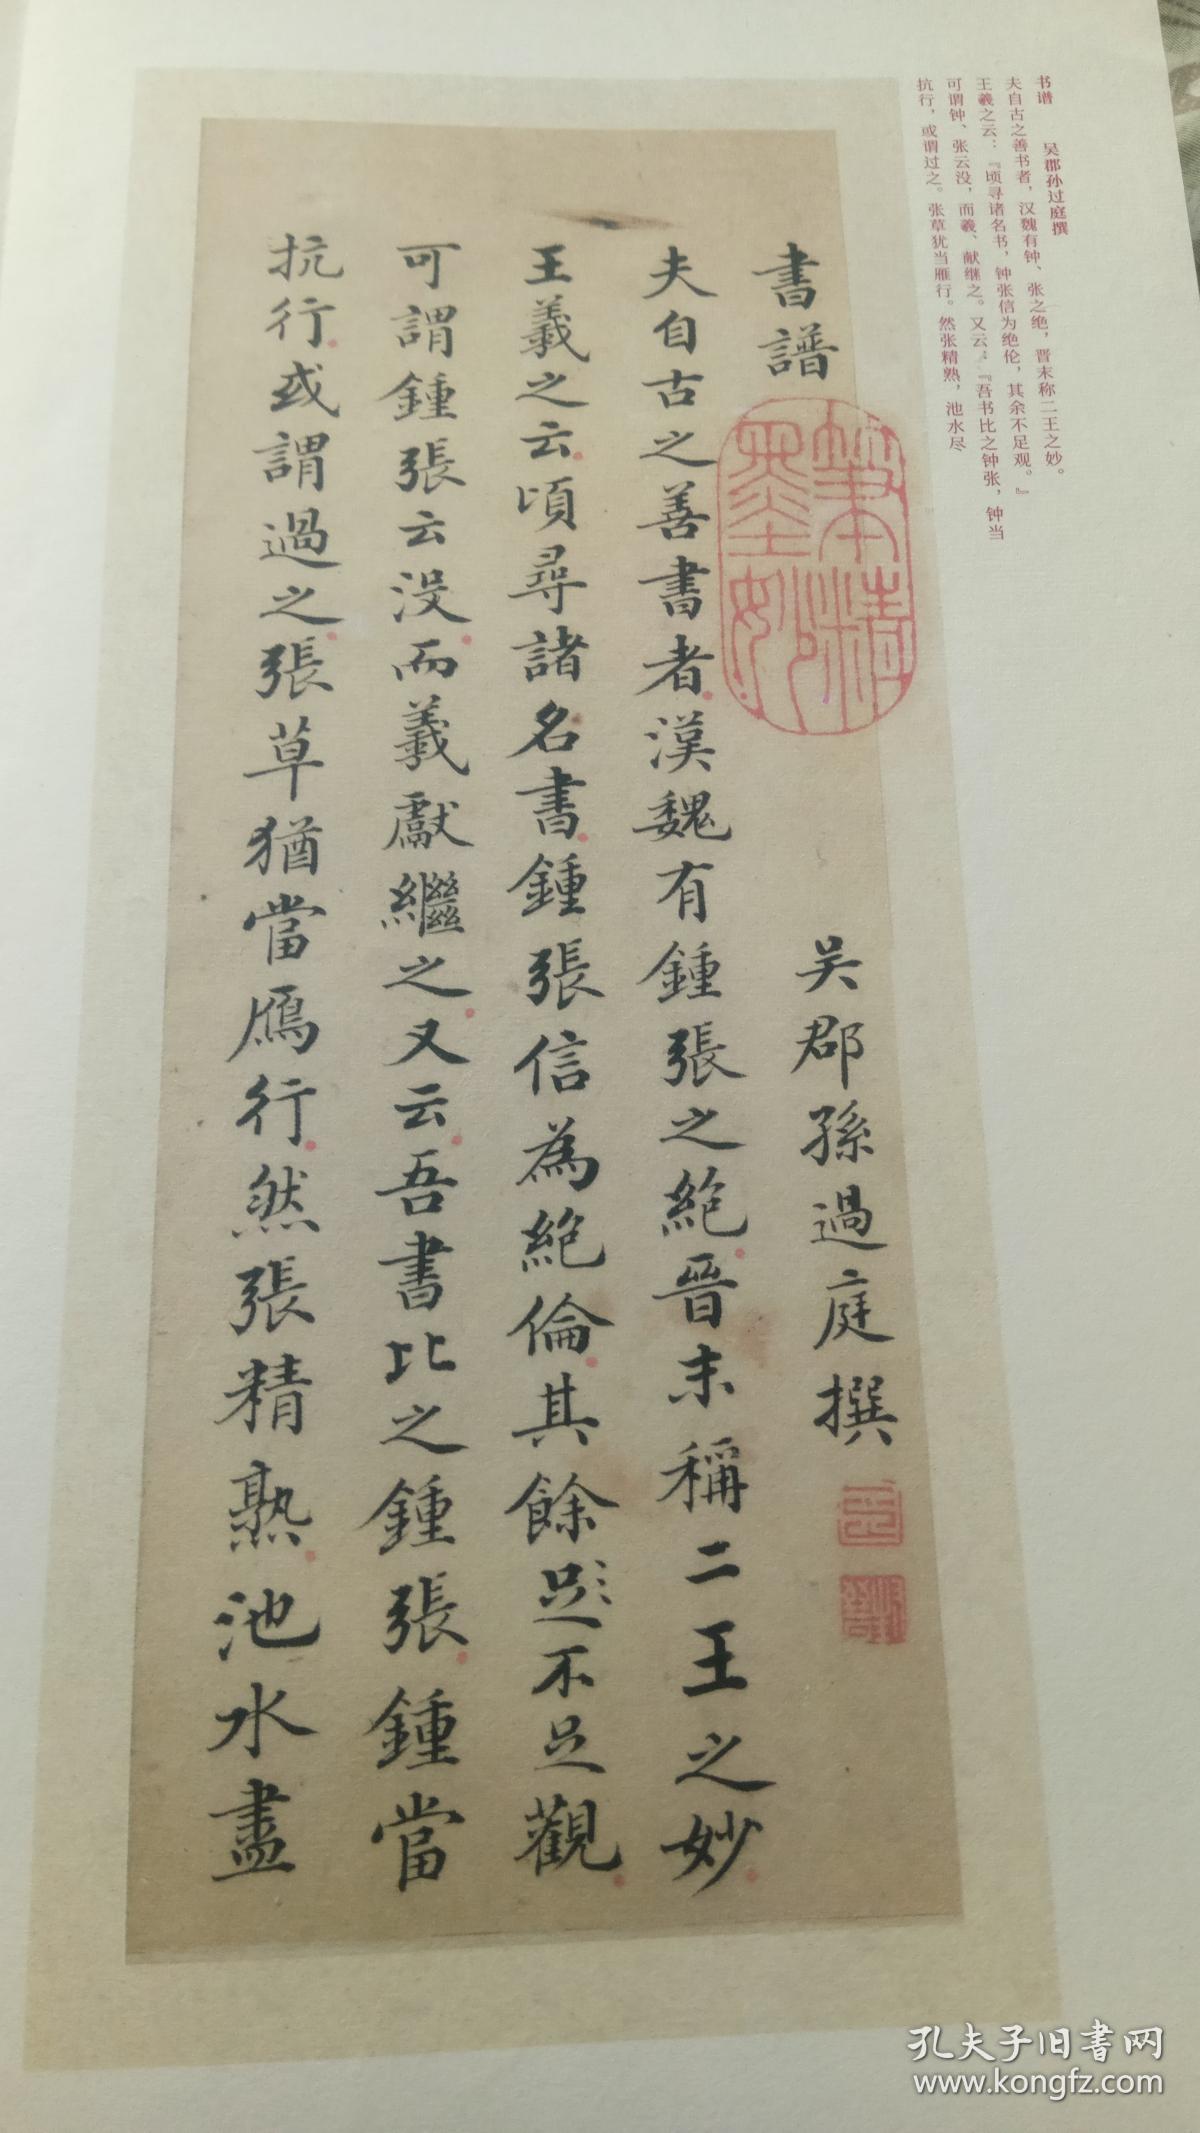 书谱 吴郡孙过庭撰
夫自古之善书者，汉魏有钟、张之绝，晋末称二王之妙。
王羲之云：『顷寻诸名书，钟张信为绝伦，其余不足观。』
可谓钟、张云没，而羲、献继之。又云：『吾书比之钟张，钟当
抗行，或谓过之。张草犹当雁行。然张精熟，池水尽
書譜 吴郡孫過庭撰
筆精墨妙
夫自古之善書者漢魏有鍾張之絶晉末稱二王之妙
王羲之云頃尋諸名書鍾張信為絶倫其餘足不足觀
可謂鍾張云没而羲獻繼之又云吾書比之鍾張鍾當
抗行或謂過之張草猶當鴈行然張精熟池水盡
孔夫子旧书网
www.kongfz.com